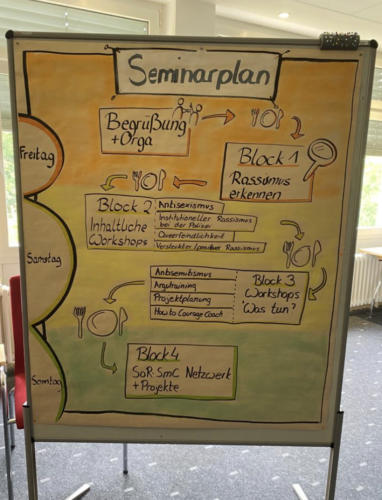 Seminarplan
Begrüßung
+ Orga
Freitag
Block 1
Rassismus
erkennen
Block 2
Inhaltliche
Workshops
Antisexismus
Institutioneller Rassismus
bei der Polizei
Queerfeindlichkeit
Versteckter/positiver Rassismus
Samstag
Antisemitismus
Argutraining
Projektplanung
How to Courage Coach
Block 3
Workshops
"Was tun?"
Block 4
SoR-SmC Netzwerk
+ Projekte
Sonntag